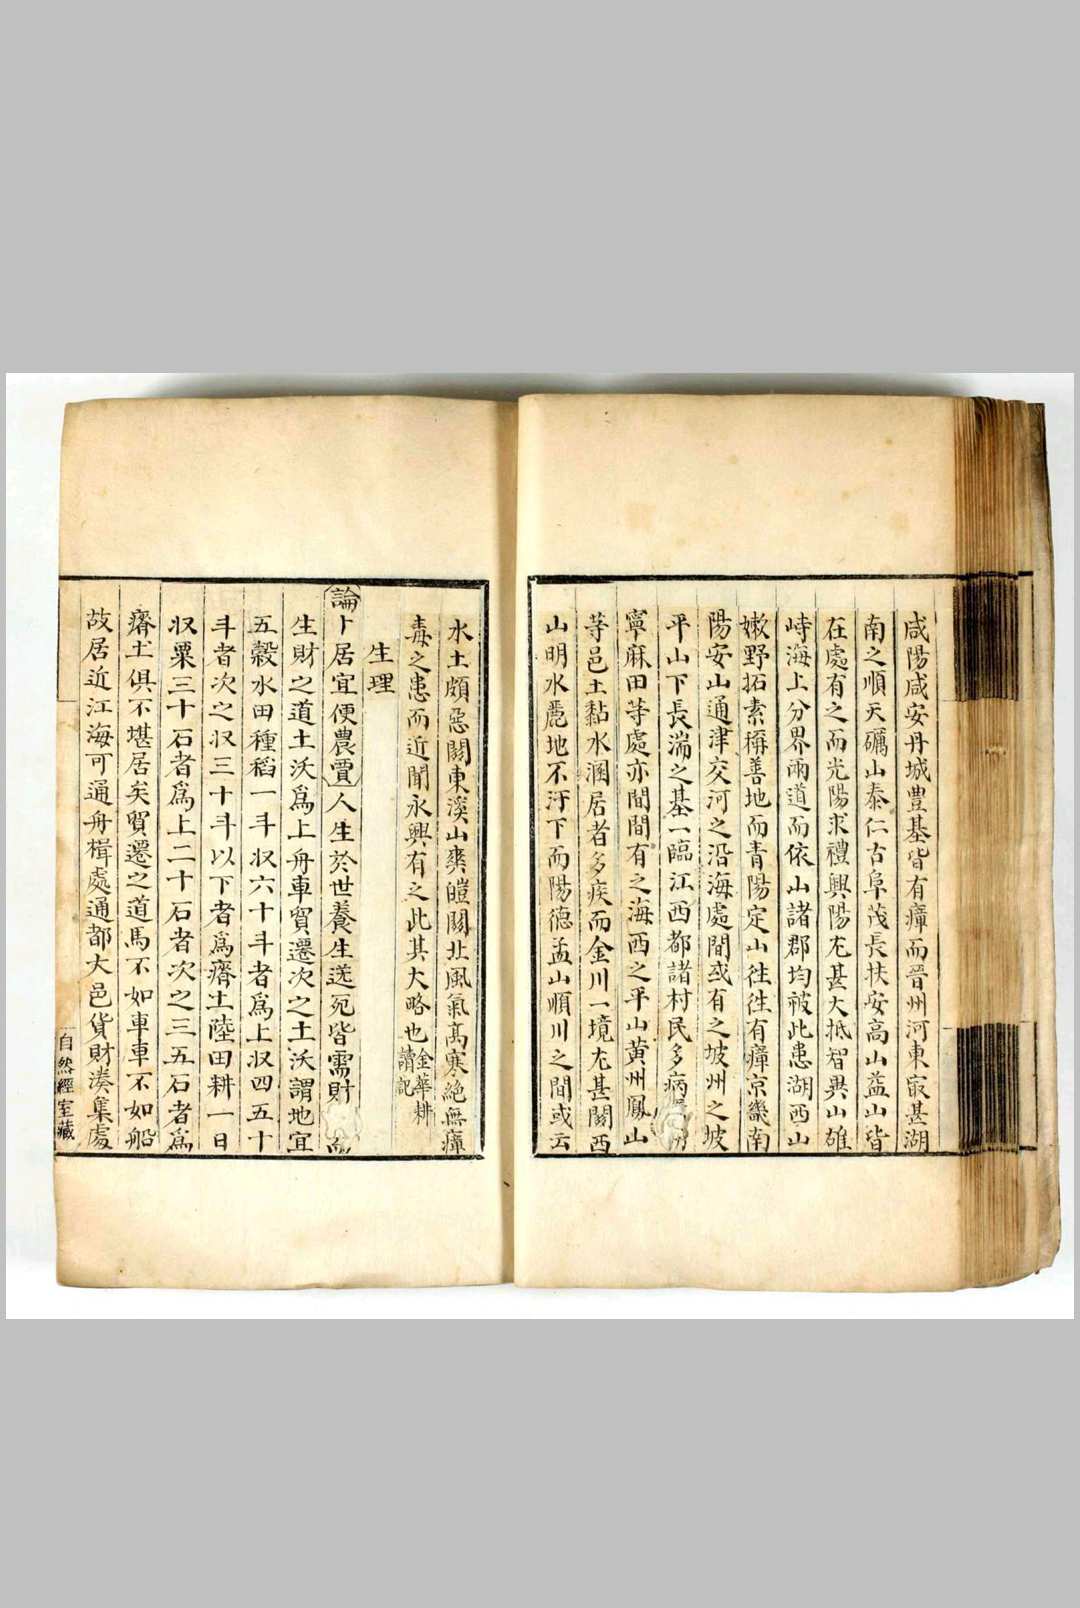 咸陽咸安丹城豊基皆有瘴而晉州河東㝡甚湖
南之順天礪山泰仁古阜茂長扶安高山益山皆
在處有之而光陽求禮興陽尤甚大抵智異山雄
峙海上分界兩道而依山諸郡均被此患湖西山
嫩野拓素稱善地而青陽定山往往有瘴京畿南
陽安山通津交河之沿海處間或有之坡州之坡
平山下長湍之基一臨江西都諸村民多病
寧麻田等處亦間間有之海西之平山黄州鳳山
等邑土黏水溷居者多疾而金川一境尤甚關西
山明水麗地不汙下而陽德孟山順川之間或云
水土頗惡關東溪山爽皚關北風氣高寒絶無瘴
毒之患而近聞永興有之此其大略也金華耕讀記
生理
論卜居宜便農賈 人生於世養生送死皆需財
生財之道土沃爲上舟車貿遷次之土沃謂地宜
五穀水田種稻一斗収六十斗者爲上収四五十
斗者次之収三十斗以下者爲瘠土陸田耕一日
収粟三十石者爲上二十石者次之三五石者爲
瘠土俱不堪居矣貿遷之道馬不如車車不如船
故居近江海可通舟楫處通都大邑貨財湊集處
自然經室藏